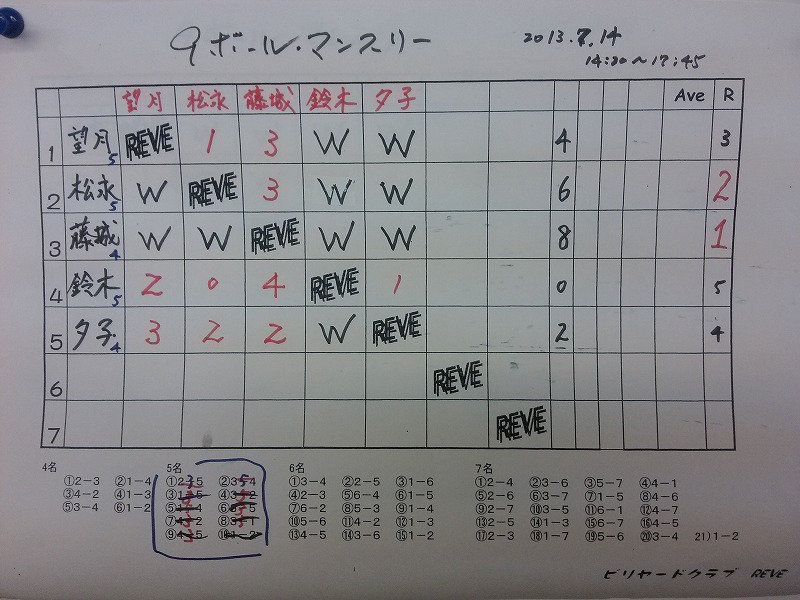 9ボール・マンスリー 2013.7.14
14:30〜17:45
望月 松永 藤城 鈴木 夕子 Ave R
1 望月 5 REVE 1 3 W W 4 3
2 松永 5 W REVE 3 W W 6 2
3 藤城 4 W W REVE W W 8 1
4 鈴木 5 2 0 4 REVE 1 0 5
5 夕子 4 3 2 2 W REVE 2 4
6 REVE
7 REVE
4名 5名 6名 7名
①2-3 ②1-4 ①3-4 ②2-5 ③1-6 ①2-4 ②3-6 ③5-7 ④4-1
③4-2 ④1-3 ④2-3 ⑤6-4 ⑥1-5 ⑤2-6 ⑥3-7 ⑦1-5 ⑧4-6
⑤3-4 ⑥1-2 ⑦6-2 ⑧5-3 ⑨1-4 ⑨2-7 ⑩3-5 ⑪6-1 ⑫4-7
⑩5-6 ⑪4-2 ⑫1-3 ⑬2-5 ⑭1-3 ⑮6-7 ⑯4-5
⑬4-5 ⑭3-6 ⑮1-2 ⑰2-3 ⑱1-7 ⑲5-6 ⑳3-4 21)1-2
ビリヤードクラブ REVE